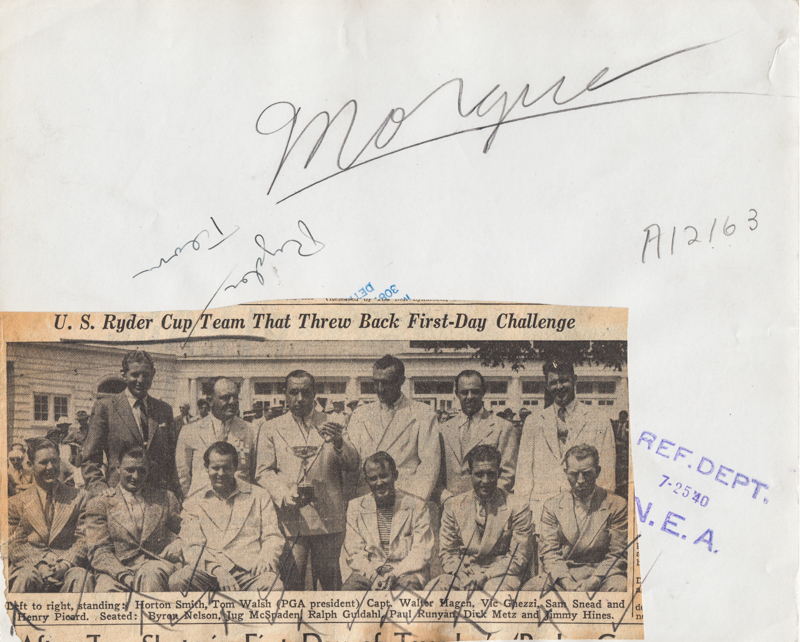 Morgue
A12163
Ryder
Team
U. S. Ryder Cup Team That Threw Back First-Day Challenge
REF. DEPT.
7-25 40
N. E. A.
Left to right, standing: Horton Smith, Tom Walsh (PGA president) Capt. Walter Hagen, Vic Ghezzi, Sam Snead and
Henry Picard. Seated: Byron Nelson, Jug McSpaden, Ralph Guldahl, Paul Runyan, Dick Metz and Jimmy Hines.